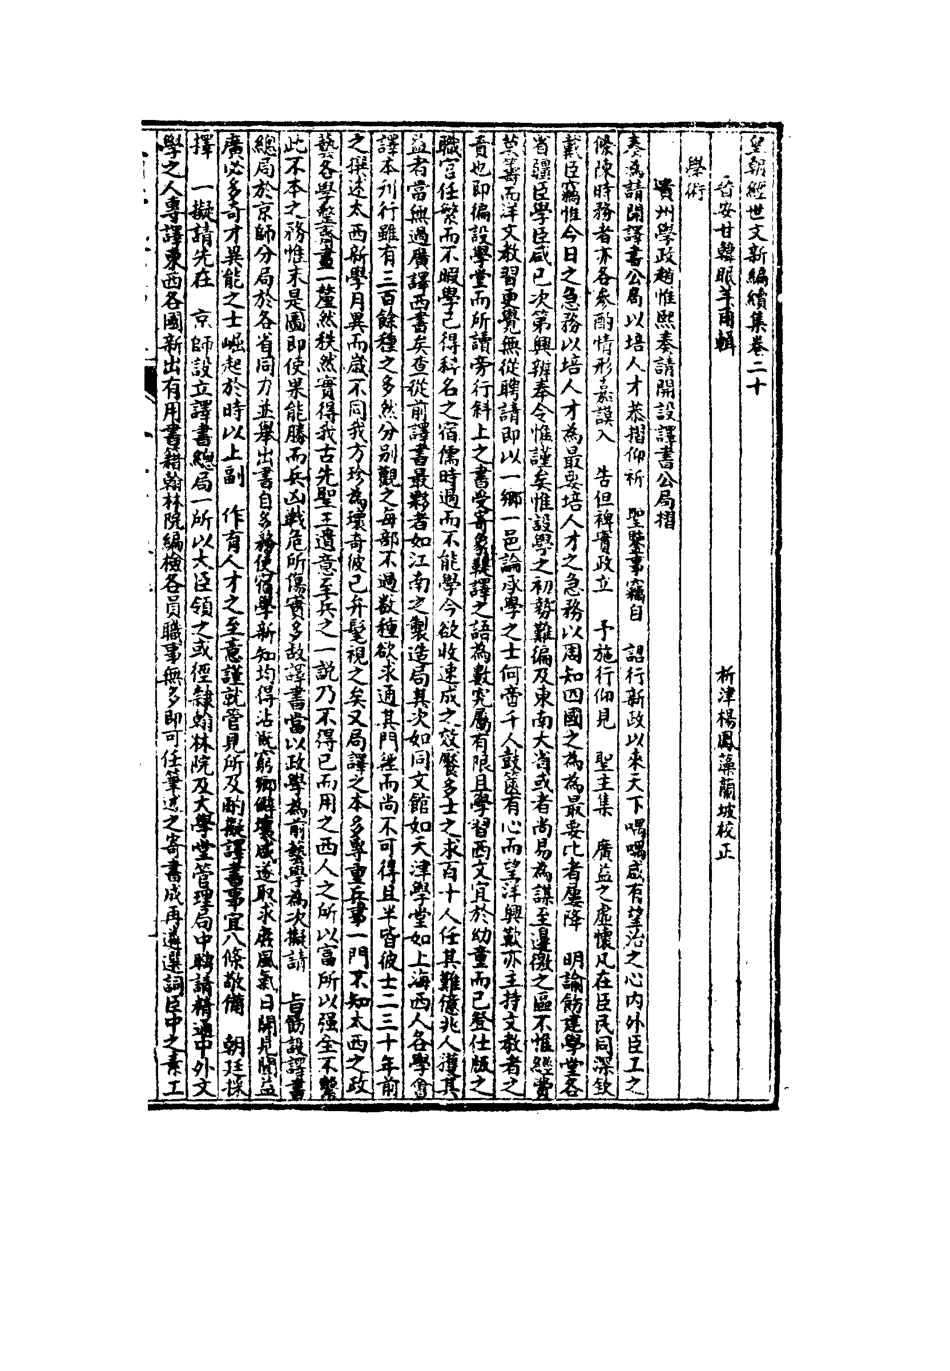 皇朝經世文新編續集卷二十
宜安甘韓眠羊甫輯　析津楊鳳藻蘭坡校正
學術
貴州學政趙惟熙奏請開設譯書公局摺
奏為請開譯書公局以培人才恭摺仰祈　聖鑒事竊自　詔行新政以來天下喁喁咸有望治之心內外臣工之
條陳時務者亦各參酌情形嘉謨入　告但裨實政立　予施行仰見　聖主集　廣益之虛懷凡在臣民同深欽
戴臣竊惟今日之急務以培人才為最要培人才之急務以周知四國之為為最要比者屢降　明諭飭建學堂各
省疆臣學臣咸已次第興辦奉令惟謹矣惟設學之初勢難徧及東南大省或者尚易為謀至邊徼之區不惟經費
莫籌而洋文教習更覺無從聘請即以一鄉一邑論承學之士何啻千人鼓篋有心而望洋興歎亦主持文教者之
責也即徧設學堂而所讀旁行斜上之書受寄象鞮譯之語為數究屬有限且學習西文宜於幼童而已登仕版之
職官任繁而不暇學已得科名之宿儒時過而不能學今欲收速成之效饜多士之求百十人任其難億兆人獲其
益者當無過廣譯西書矣查從前譯書最夥者如江南之製造局其次如同文館如天津學堂如上海西人各學會
譯本刋行雖有三百餘種之多然分別觀之每部不過數種欲求通其門徑而尚不可得且半皆彼士二三十年前
之撰述太西新學月異而歲不同我方珍為瓌奇彼已弁髦視之矣又局譯之本多專重兵事一門不知太西之政
藝各學整齊畫一釐然秩然實得我古先聖王遺意至兵之一說乃不得已而用之西人之所以富所以强全不繫
此不本之務惟末是圖即使果能勝而兵凶戰危所傷實多故譯書當以政學為前藝學為次擬請　旨飭設譯書
總局於京師分局於各省同力並舉出書自多務使宿學新知均得沾溉窮鄉僻壤咸遂取求庶風氣日開見聞益
廣必多奇才異能之士崛起於時以上副　作育人才之至意謹就管見所及酌擬譯書事宜八條敬備　朝廷採
擇　一擬請先在　京師設立譯書總局一所以大臣領之或徑隸翰林院及大學堂管理局中聘請精通中外文
學之人專譯東西各國新出有用書籍翰林院編檢各員職事無多即可任筆述之寄書成再遴選詞臣中之素工